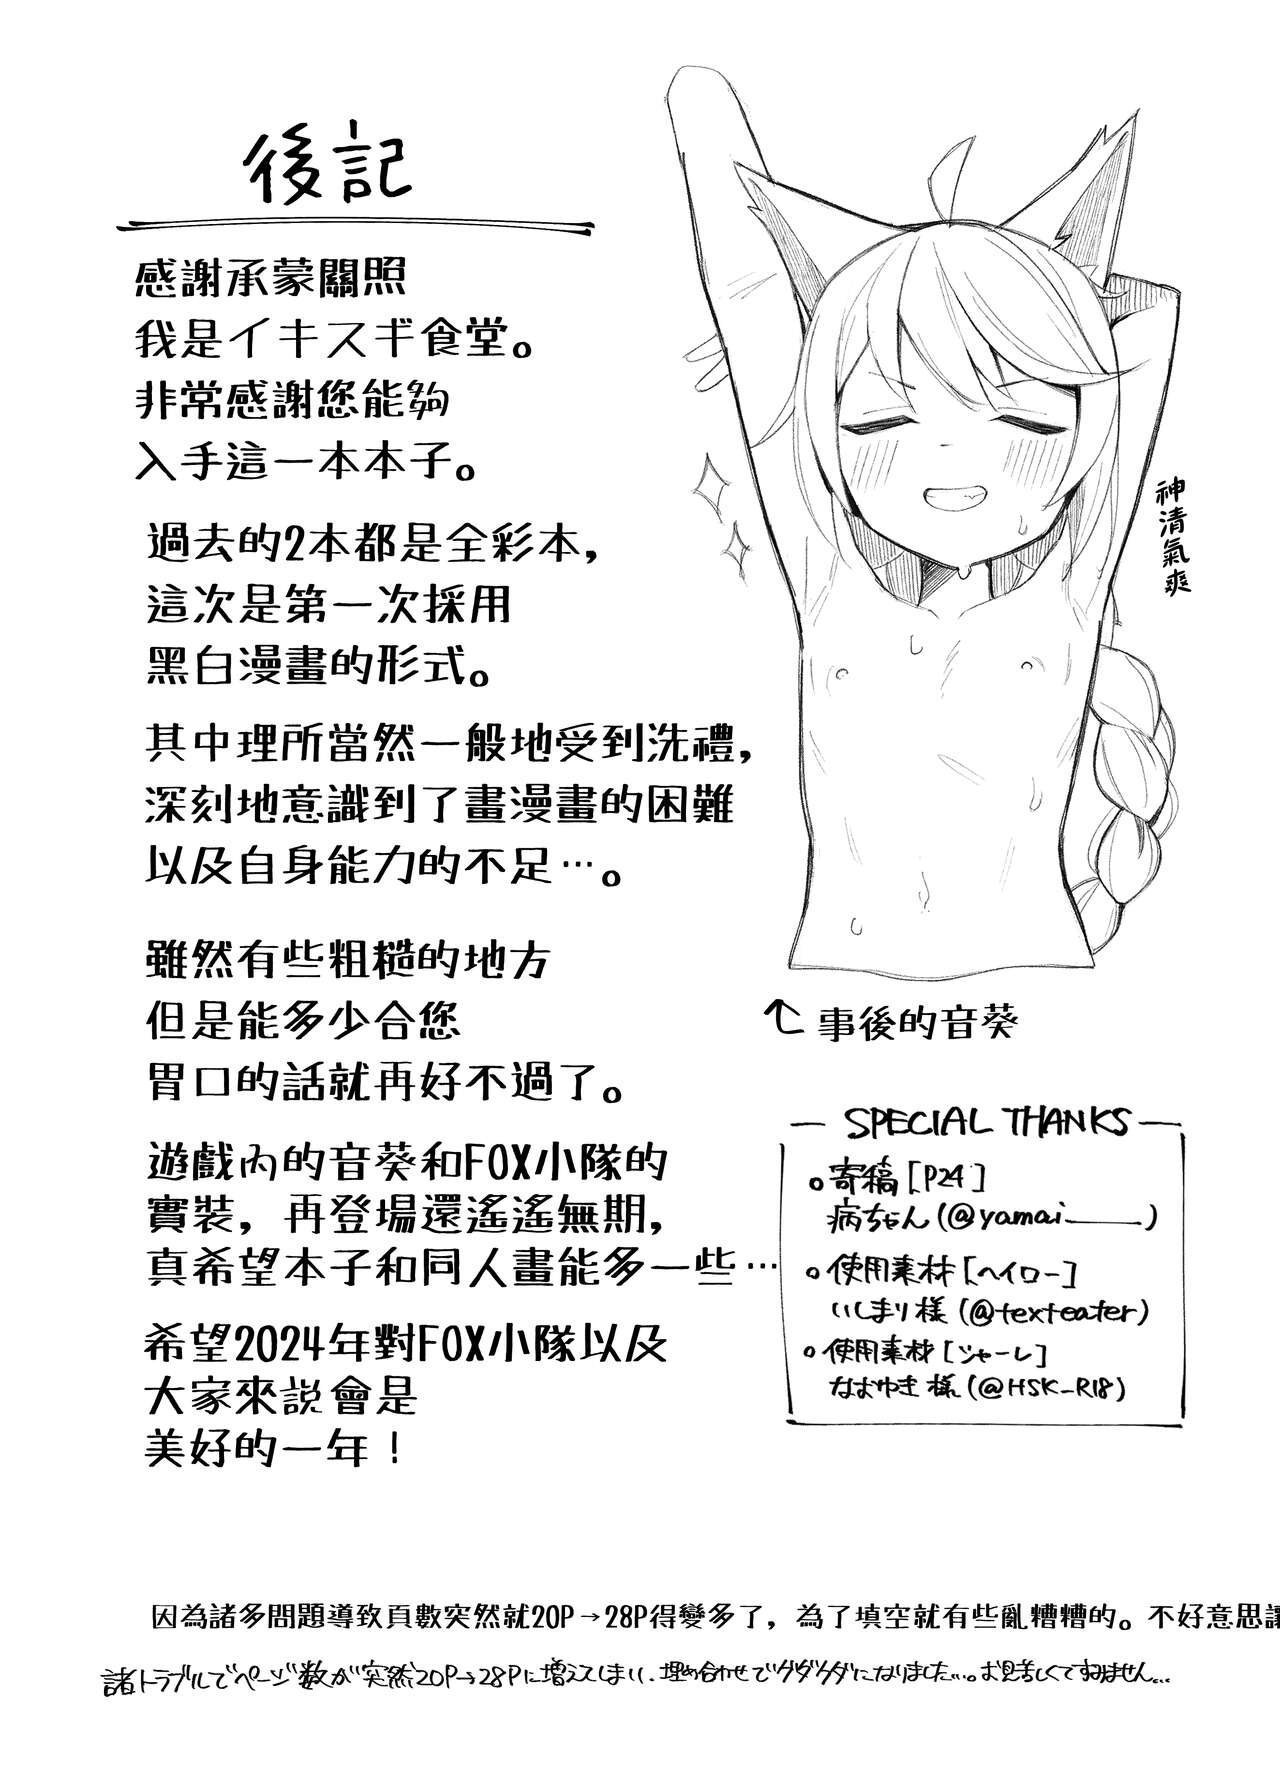 後記
感謝承蒙關照
我是イキスギ食堂。
非常感謝您能夠
入手這一本本子。
過去的2本都是全彩本，
這次是第一次採用
黑白漫畫的形式。
其中理所當然一般地受到洗禮，
深刻地意識到了畫漫畫的困難
以及自身能力的不足…。
雖然有些粗糙的地方
但是能多少合您
胃口的話就再好不過了。
遊戲內的音葵和FOX小隊的
實裝，再登場還遙遙無期，
真希望本子和同人畫能多一些…
希望2024年對FOX小隊以及
大家來説會是
美好的一年！
神清氣爽
事後的音葵
SPECIAL THANKS
。寄稿[P24]
病ちゃん(@yamai______)
。使用素材[ヘイロー]
いしまり様(@texteater)
。使用素材[シャーレ]
なおゆき様(@HSK_R18)
因為諸多問題導致頁數突然就20P→28P得變多了，為了填空就有些亂糟糟的。不好意思讓
諸トラブルでページ数が突然20P→28Pに増えてしまい、埋め合わせでグダグダになりました…。お見苦しくてすみません…